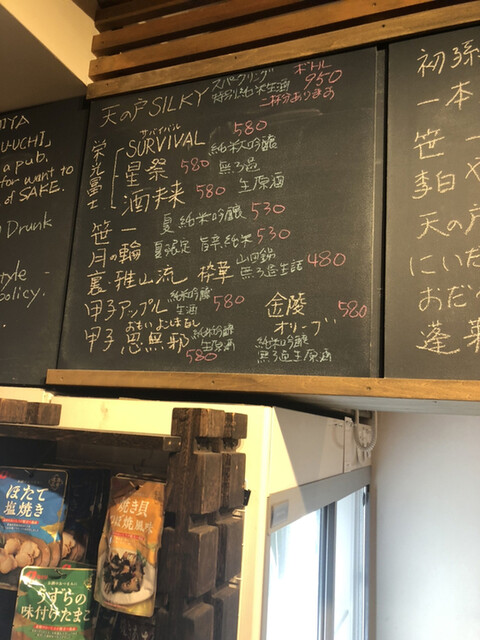 IYA
UCHI」
a pub.
for want to
of SAKE.
Drunk
style
policy.
天の戸 SILKY スパークリング
特別純米生酒
ボトル
950
二杯分あります
栄光冨士
サバイバル
SURVIVAL 580
純米大吟醸
星祭 580 無ろ過
酒未来 580 生原酒
笹一 夏純米吟醸 530
月の輪 夏限定 旨辛純米 530
裏・雅山流 棒華 山田錦
無ろ過生詰 480
甲子アップル 純米吟醸
生酒 580
甲子 おもいよこしまなし
思無邪 純米吟醸
生原酒
580
金陵 580
オリーブ
純米吟醸
無ろ過生原酒
初孫
一本
笹一
李白
天の戸
にいだ
おだ
蓬莱
ほたて
塩焼き
焼き貝
つぼ焼風味
うずらの
味付けたまご